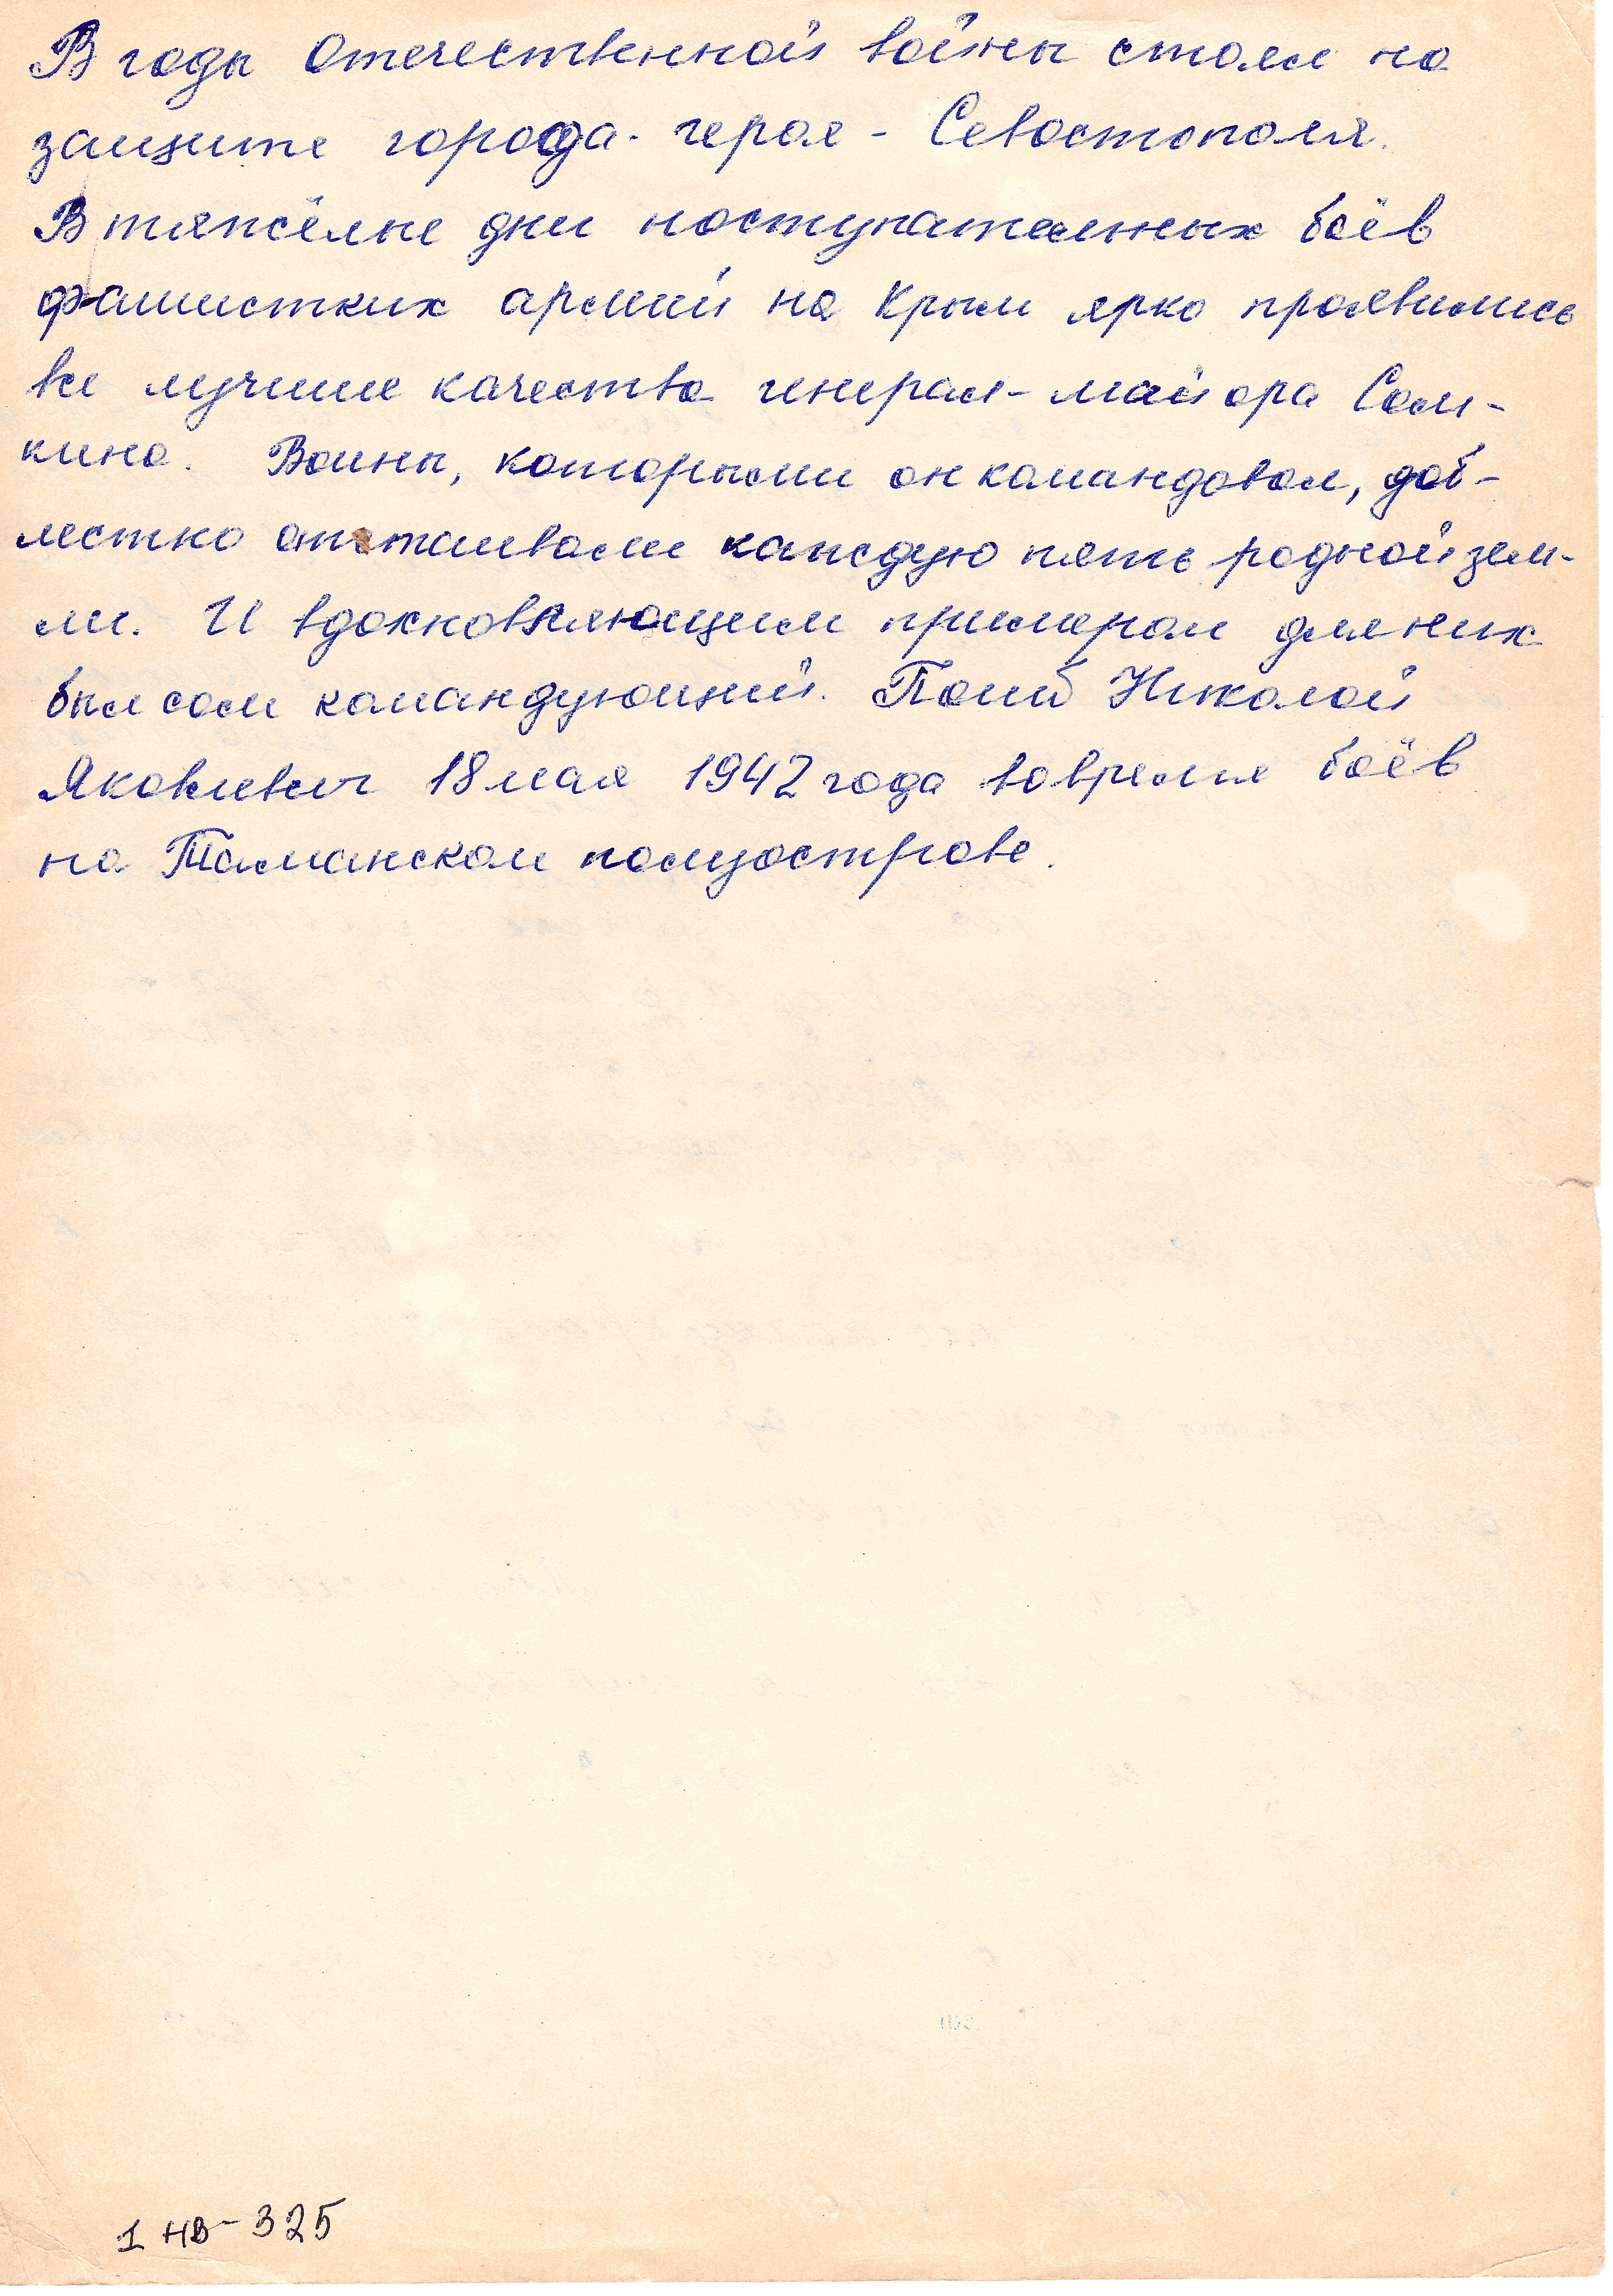 В годы Отечественной войны стоял на
защите города-героя - Севастополя.
В тяжёлые дни наступательных боёв
фашистких армий на Крым ярко проявились
все лучшие качества генерал-майора Сам-
кина. Воины, которыми он командовал, доб-
лестно отстаивали каждую пять родной зем-
ли. И вдохновляющим примером для них
был сам командующий. Погиб Николай
Яковлевич 18 мая 1942 года во время боёв
на Таманском полуострове.
1 НВ-325